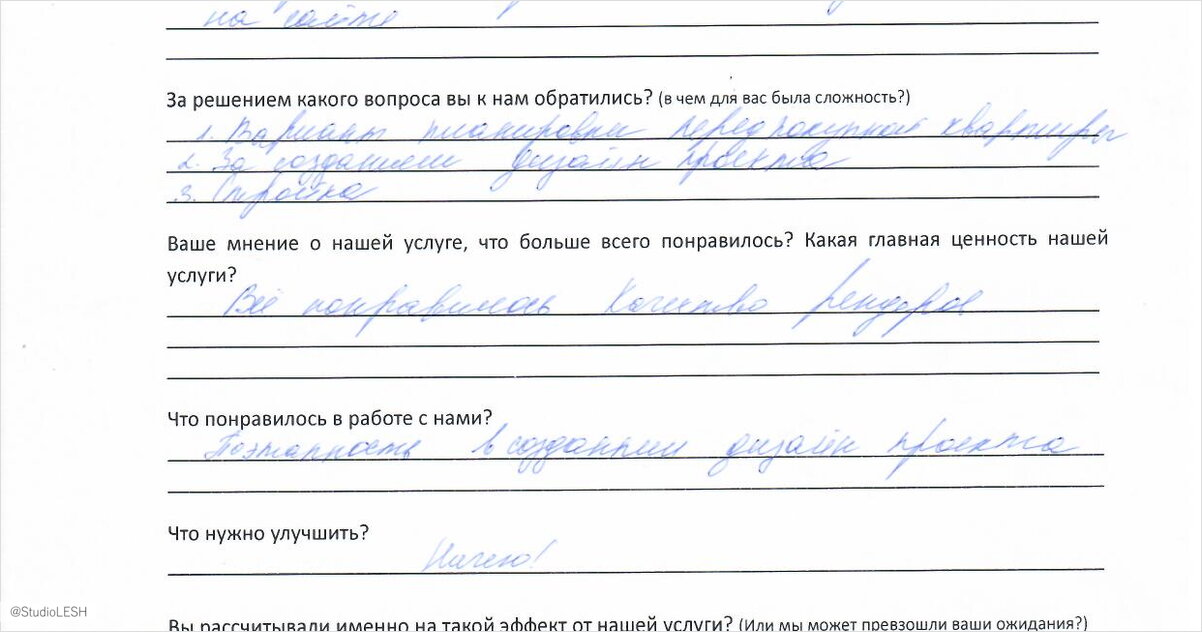 на сайте
За решением какого вопроса вы к нам обратились? (в чем для вас была сложность?)
1. Варианы планировки перед покупкой квартиры
2. За созданием дизайн проекта
3. Стройка
Ваше мнение о нашей услуге, что больше всего понравилось? Какая главная ценность нашей
услуги?
Всё понравилось Качество рендеров
Что понравилось в работе с нами?
Поэтапность в создании дизайн проекта
Что нужно улучшить?
Ничего!
@StudioLESH
Вы рассчитывали именно на такой эффект от нашей услуги? (Или мы может превзошли ваши ожидания?)